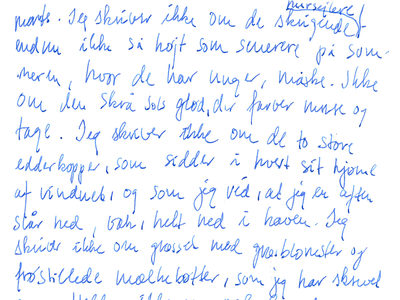 mursejlere
Jeg skriver ikke om de skrigende
endnu ikke så højt som senere på som-
meren, hvor de har unger, måske. Ikke
om den skrå sols glød, der farver mure og
tage. Jeg skriver ikke om de to store
edderkopper, som sidder i hvert sit hjørne
af vinduet, og som jeg ved, at jeg en aften
slår ned, helt ned i haven. Jeg
skriver ikke om græsset med græsblomster og
mælkebøtter, som jeg har skrevet